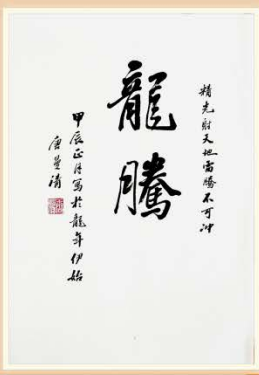 精光射天地雷騰不可冲
龍騰
甲辰正月寫於龍年伊始